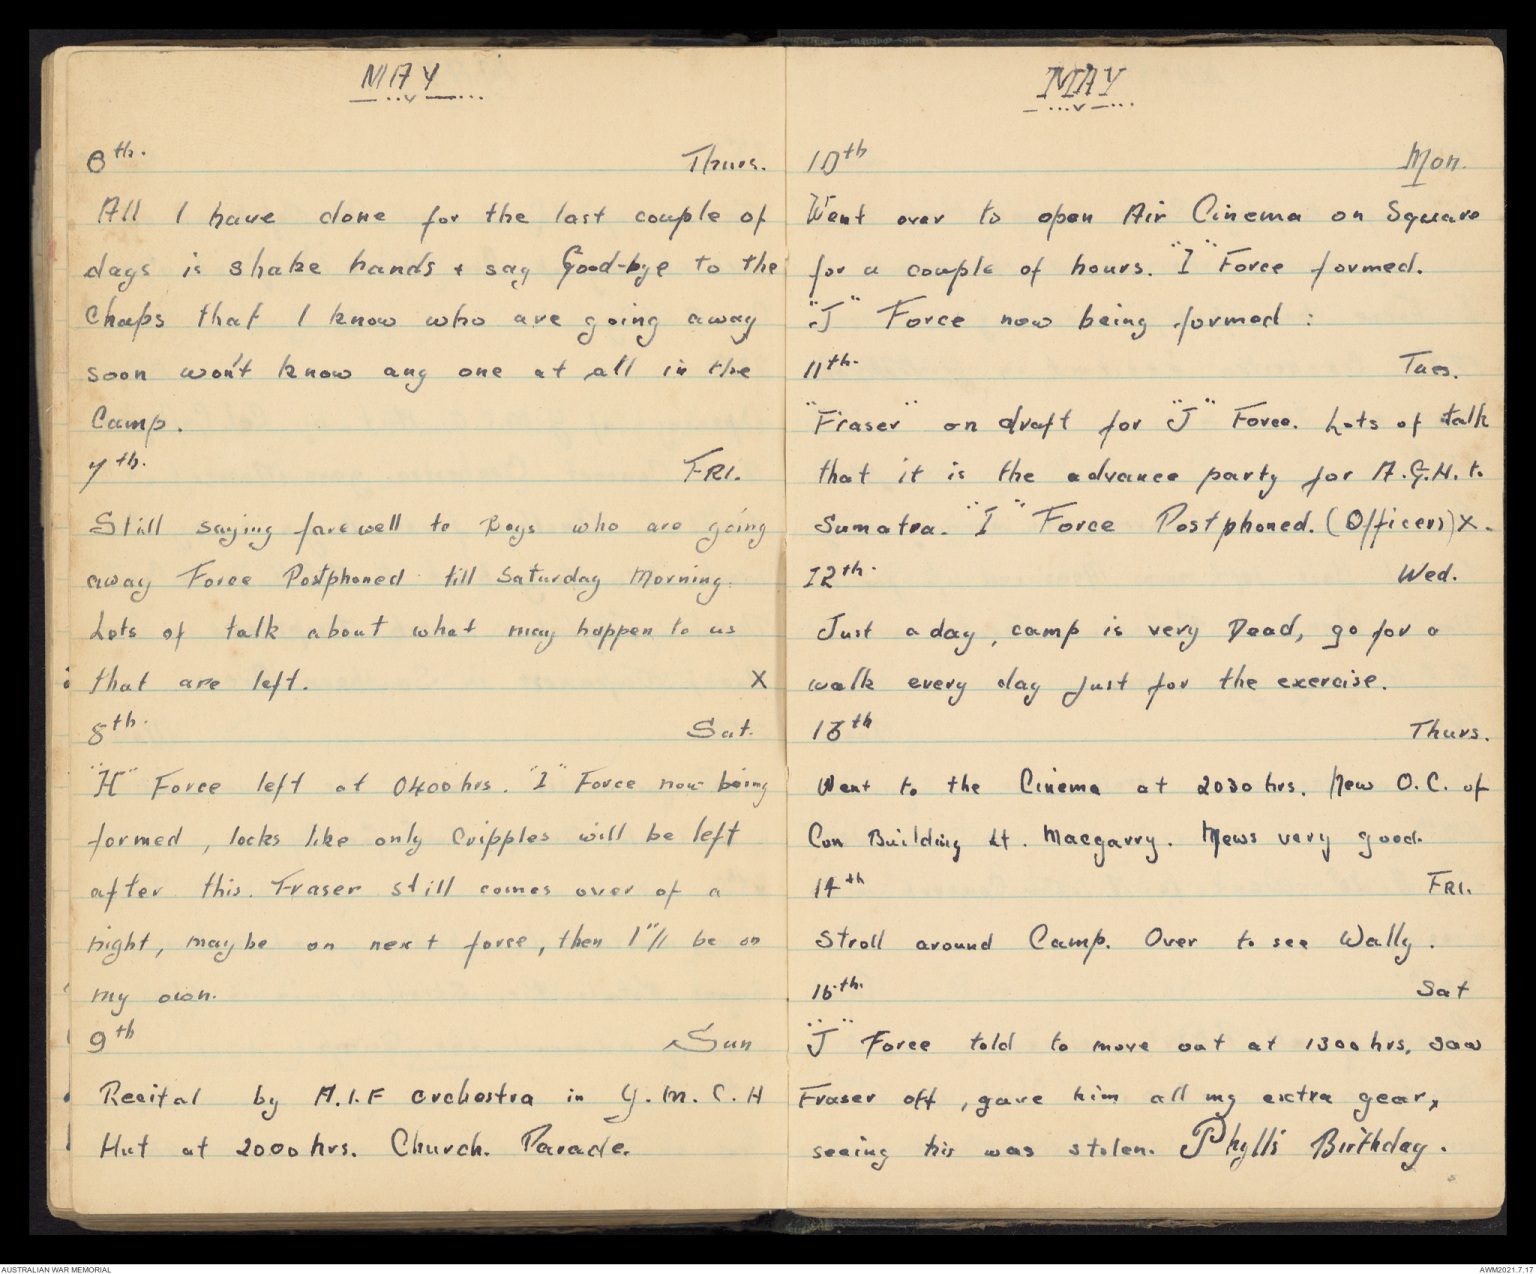 MAY
6th. Thurs.
All I have done for the last couple of
days is shake hands + say Good-bye to the
Chaps that I know who are going away
soon won't know any one at all in the
Camp.
7th. FRI.
Still saying farewell to Boys who are going
away Force Postphoned till Saturday Morning.
Lots of talk about what may happen to us
that are left. X
8th. Sat.
"H" Force left at 0400hrs. "I" Force now being
formed, looks like only Cripples will be left
after this. Fraser still comes over of a
night, maybe on next force, then I"ll be on
my own.
9th Sun
Recital by A.I.F orchestra in Y.M.C.A
Hut at 2000hrs. Church. Parade.
MAY
10th Mon.
Went over to open Air Cinema on Square
for a couple of hours. "I" Force formed.
"J" Force now being formed :
11th. Tues.
"Fraser" on draft for "J" Force. Lots of talk
that it is the advance party for A.G.H. to
Sumatra. "I" Force Postphoned. (Officers) X.
12th. Wed.
Just a day, camp is very Dead, go for a
walk every day just for the exercise.
13th Thurs.
Went to the Cinema at 2030 hrs. New O.C. of
Con Building Lt. Macgarry. News very good.
14th FRI.
Stroll around Camp. Over to see Wally.
15th. Sat
"J" Force told to move out at 1300 hrs, saw
Fraser off, gave him all my extra gear,
seeing his was stolen. Phylls Birthday.
AUSTRALIAN WAR MEMORIAL
AWM2021.7.17